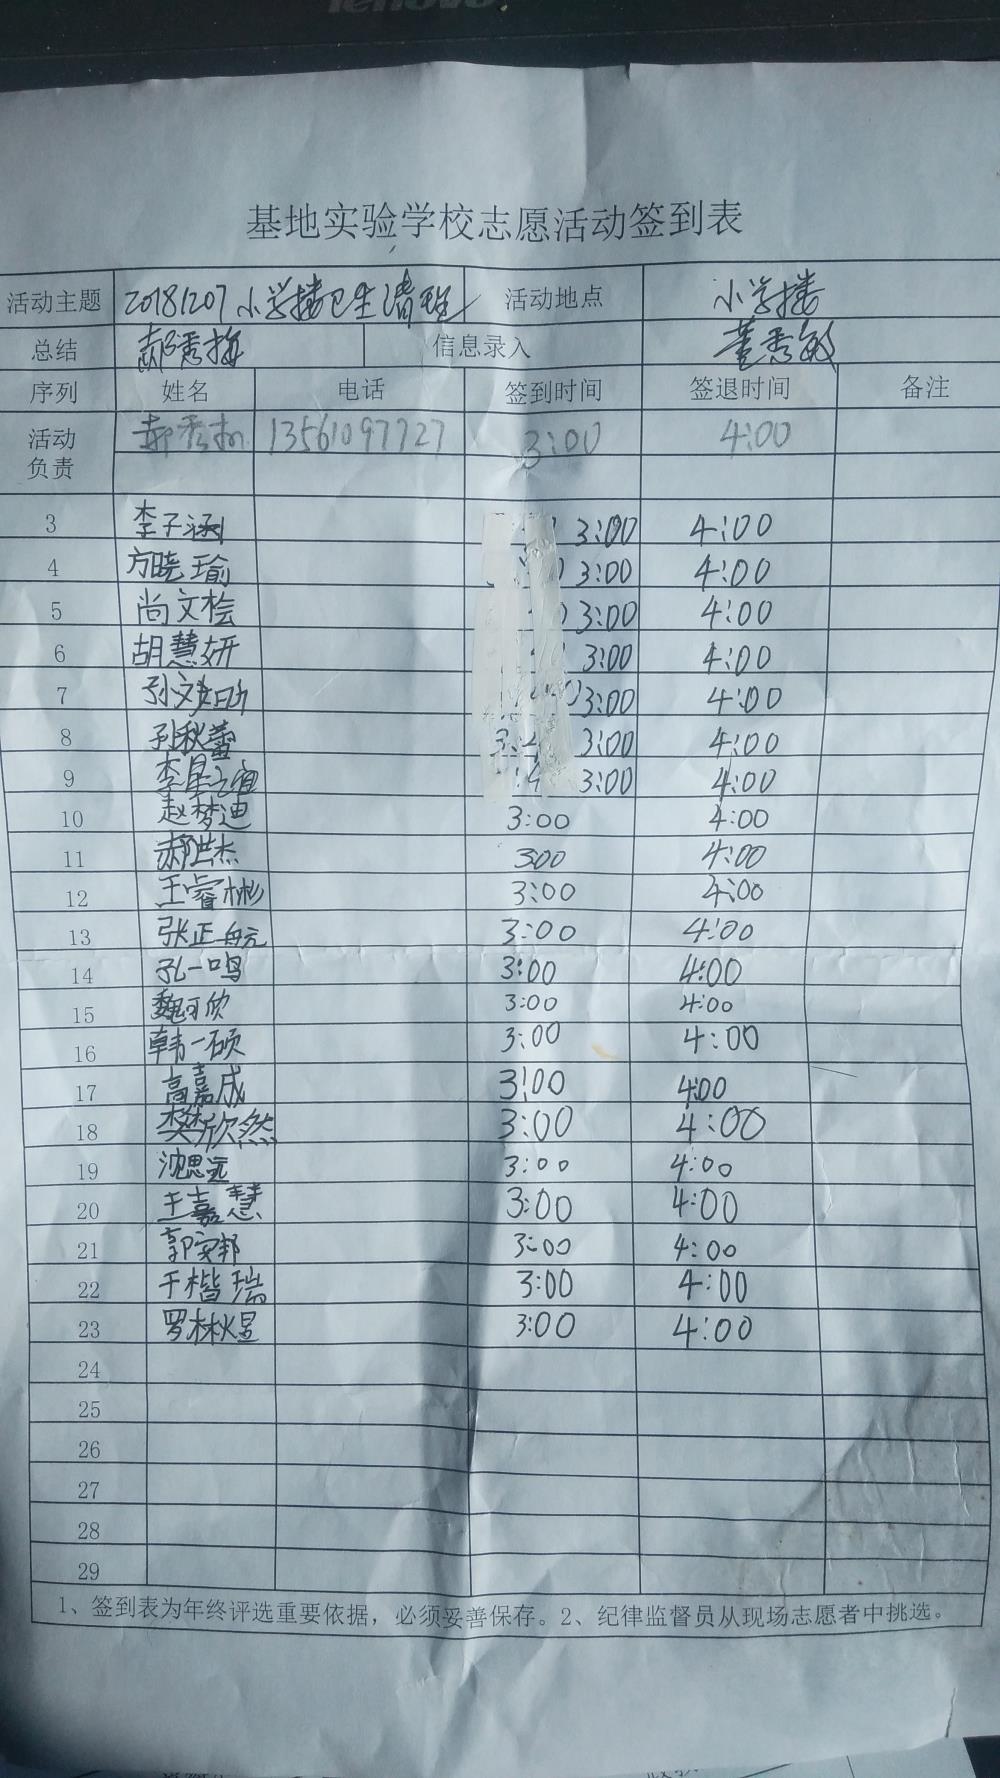 lenovo
基地实验学校志愿活动签到表
活动主题 20181207小学楼卫生清理 活动地点 小学楼
总结 郝秀梅 信息录入 董秀敏
序列 姓名 电话 签到时间 签退时间 备注
活动负责 13561097727 3:00 4:00
3 李子涵 3:00 4:00
4 方晓瑜 3:00 4:00
5 尚文桧 3:00 4:00
6 胡慧妍 3:00 4:00
7 3:00 4:00
8 孙秋蕾 3:00 4:00
9 3:00 4:00
10 赵梦迪 3:00 4:00
11 郝世杰 300 4:00
12 王睿彬 3:00 4:00
13 张正航 3:00 4:00
14 孔一鸣 3:00 4:00
15 魏可欣 3:00 4:00
16 韩一硕 3:00 4:00
17 高嘉成 3:00 4:00
18 樊欣然 3:00 4:00
19 沈思远 3:00 4:00
20 王嘉慧 3:00 4:00
21 郭安邦 3:00 4:00
22 于楷瑞 3:00 4:00
23 罗林煜 3:00 4:00
24
25
26
27
28
29
1、签到表为年终评选重要依据，必须妥善保存。2、纪律监督员从现场志愿者中挑选。